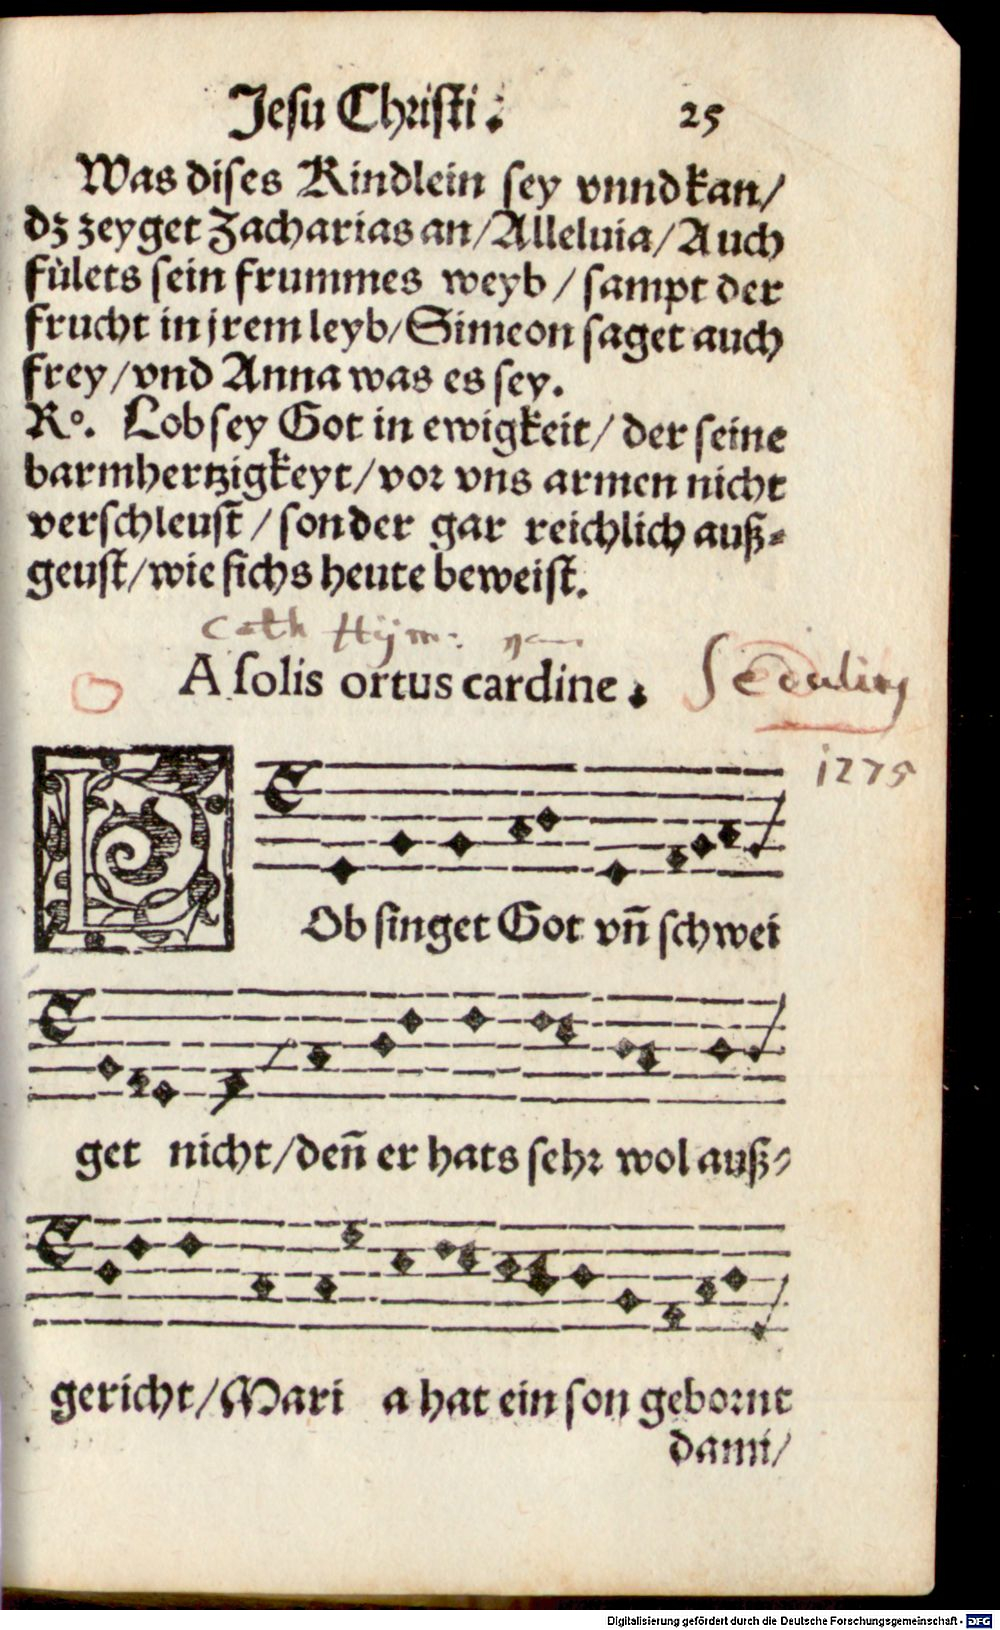 Jesu Christi. 25
Was dises Kindlein sey vnnd kan/
dz zeyget Zacharias an/Alleluia/Auch
fület͡s sein frummes weyb/sampt der
frucht in jrem leyb/Simeon saget auch
frey/vnd Anna was es sey.
Rº. Lob sey Got in ewigkeit/der seine
barmhertzigkeyt/vor vns armen nicht
verschleust/sonder gar reichlich auß⸗
geust/wie sichs heute beweist.
Cath Hÿm:
A solis ortus cardine.
Sedulius
1275
LOb singet Got vn̄ schwei
get nicht/den̄ er hats sehr wol auß⸗
gericht/Mari a hat ein son gebornt
dami/
Digitalisierung gefördert durch die Deutsche Forschungsgemeinschaft - DFG